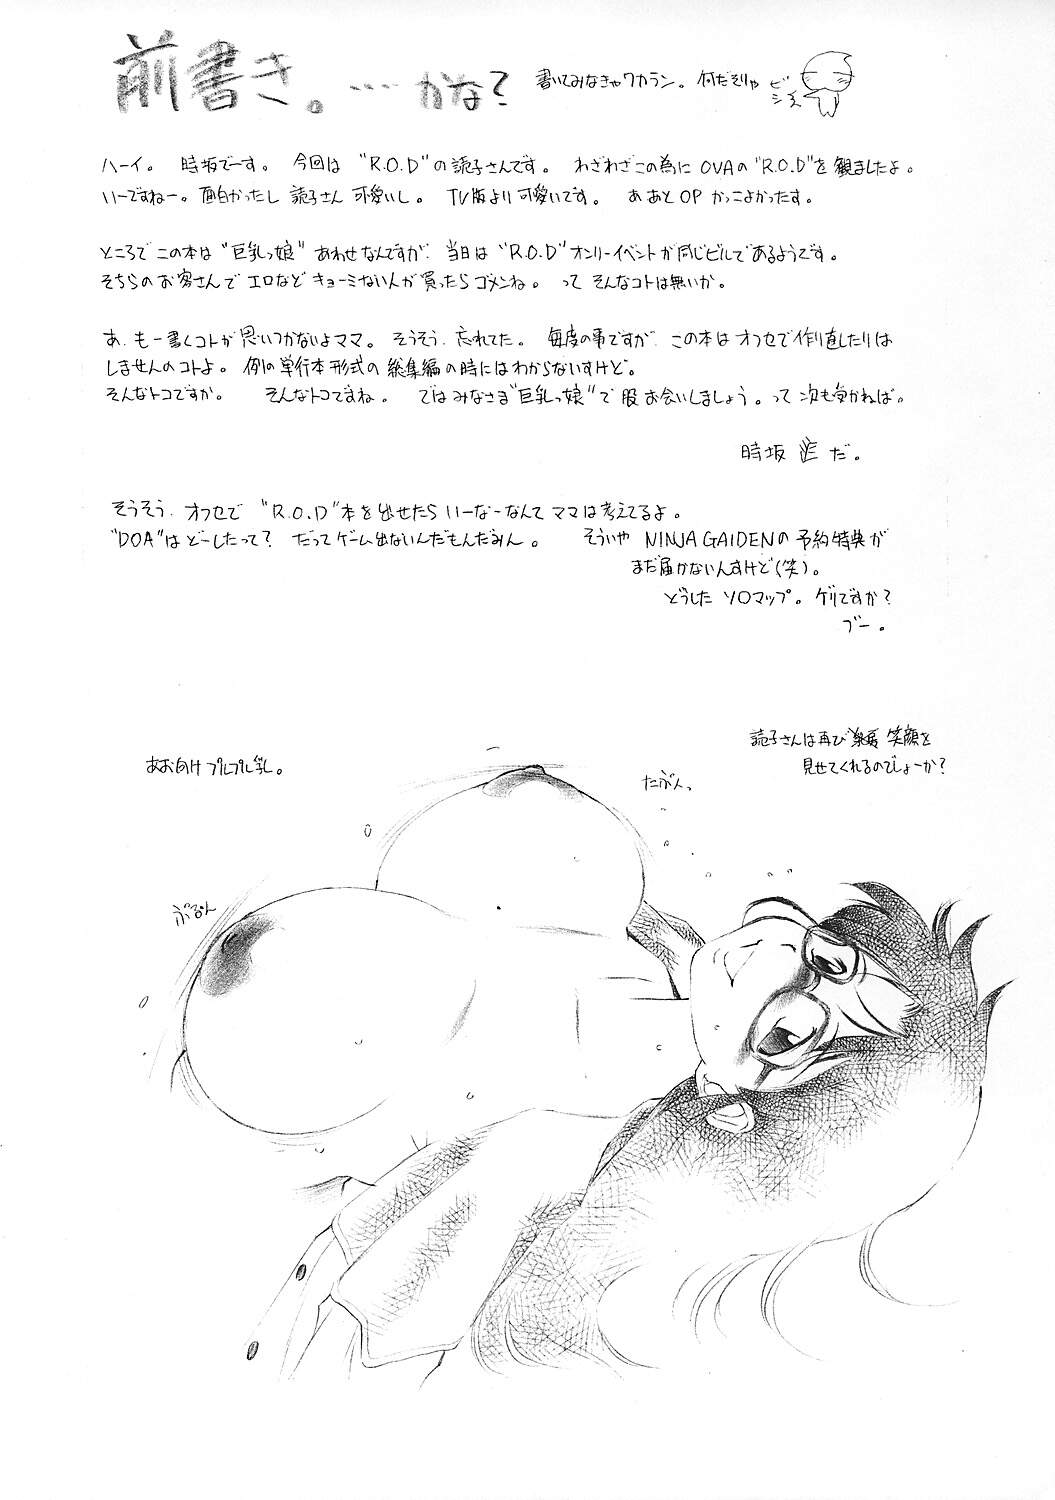 前書き。……かな?
書いてみなきゃワカラン。何だそりゃ
ビシえ
ハーイ。 時坂でーす。 今回は "R.O.D"の読子さんです。 わざわざこの為にOVAの"R.O.D"を観ましたよ。
いーですねー。面白かったし 読子さん 可愛いし。 TV版より可愛いです。 あ あとOP かっこよかったす。
ところでこの本は"巨乳っ娘" あわせなんですが、当日は"R.O.D"オンリーイベントが同じビルであるようです。
そちらのお客さんで エロなど キョーミない人が買ったらゴメンね。 って そんなコトは無いか。
あ、もー書くコトが思いつかないよママ。そうそう、忘れてた。 毎度の事ですが、この本はオフセで作り直したりは
しませんのコトよ。例の単行本形式の総集編の時にはわからないすけど。
そんなトコですか。 そんなトコですね。 ではみなさま"巨乳っ娘"で股お会いしましょう。って 次も受かれば。
時坂 だ。
そうそう、オフセで "R.O.D"本を出せたらいーなーなんてママは考えてるよ。
"DOA"はどーしたって? だってゲーム出ないんだもんだみん。 そういや NINJA GAIDENの予約特典が
まだ届かないんすけど(笑)。
どうした ソロマップ。ゲリですか?
ブー。
読子さんは再び 笑顔を
見せてくれるのでしょーか?
あおむけプルプル乳。
たぷんっ
ぷるん